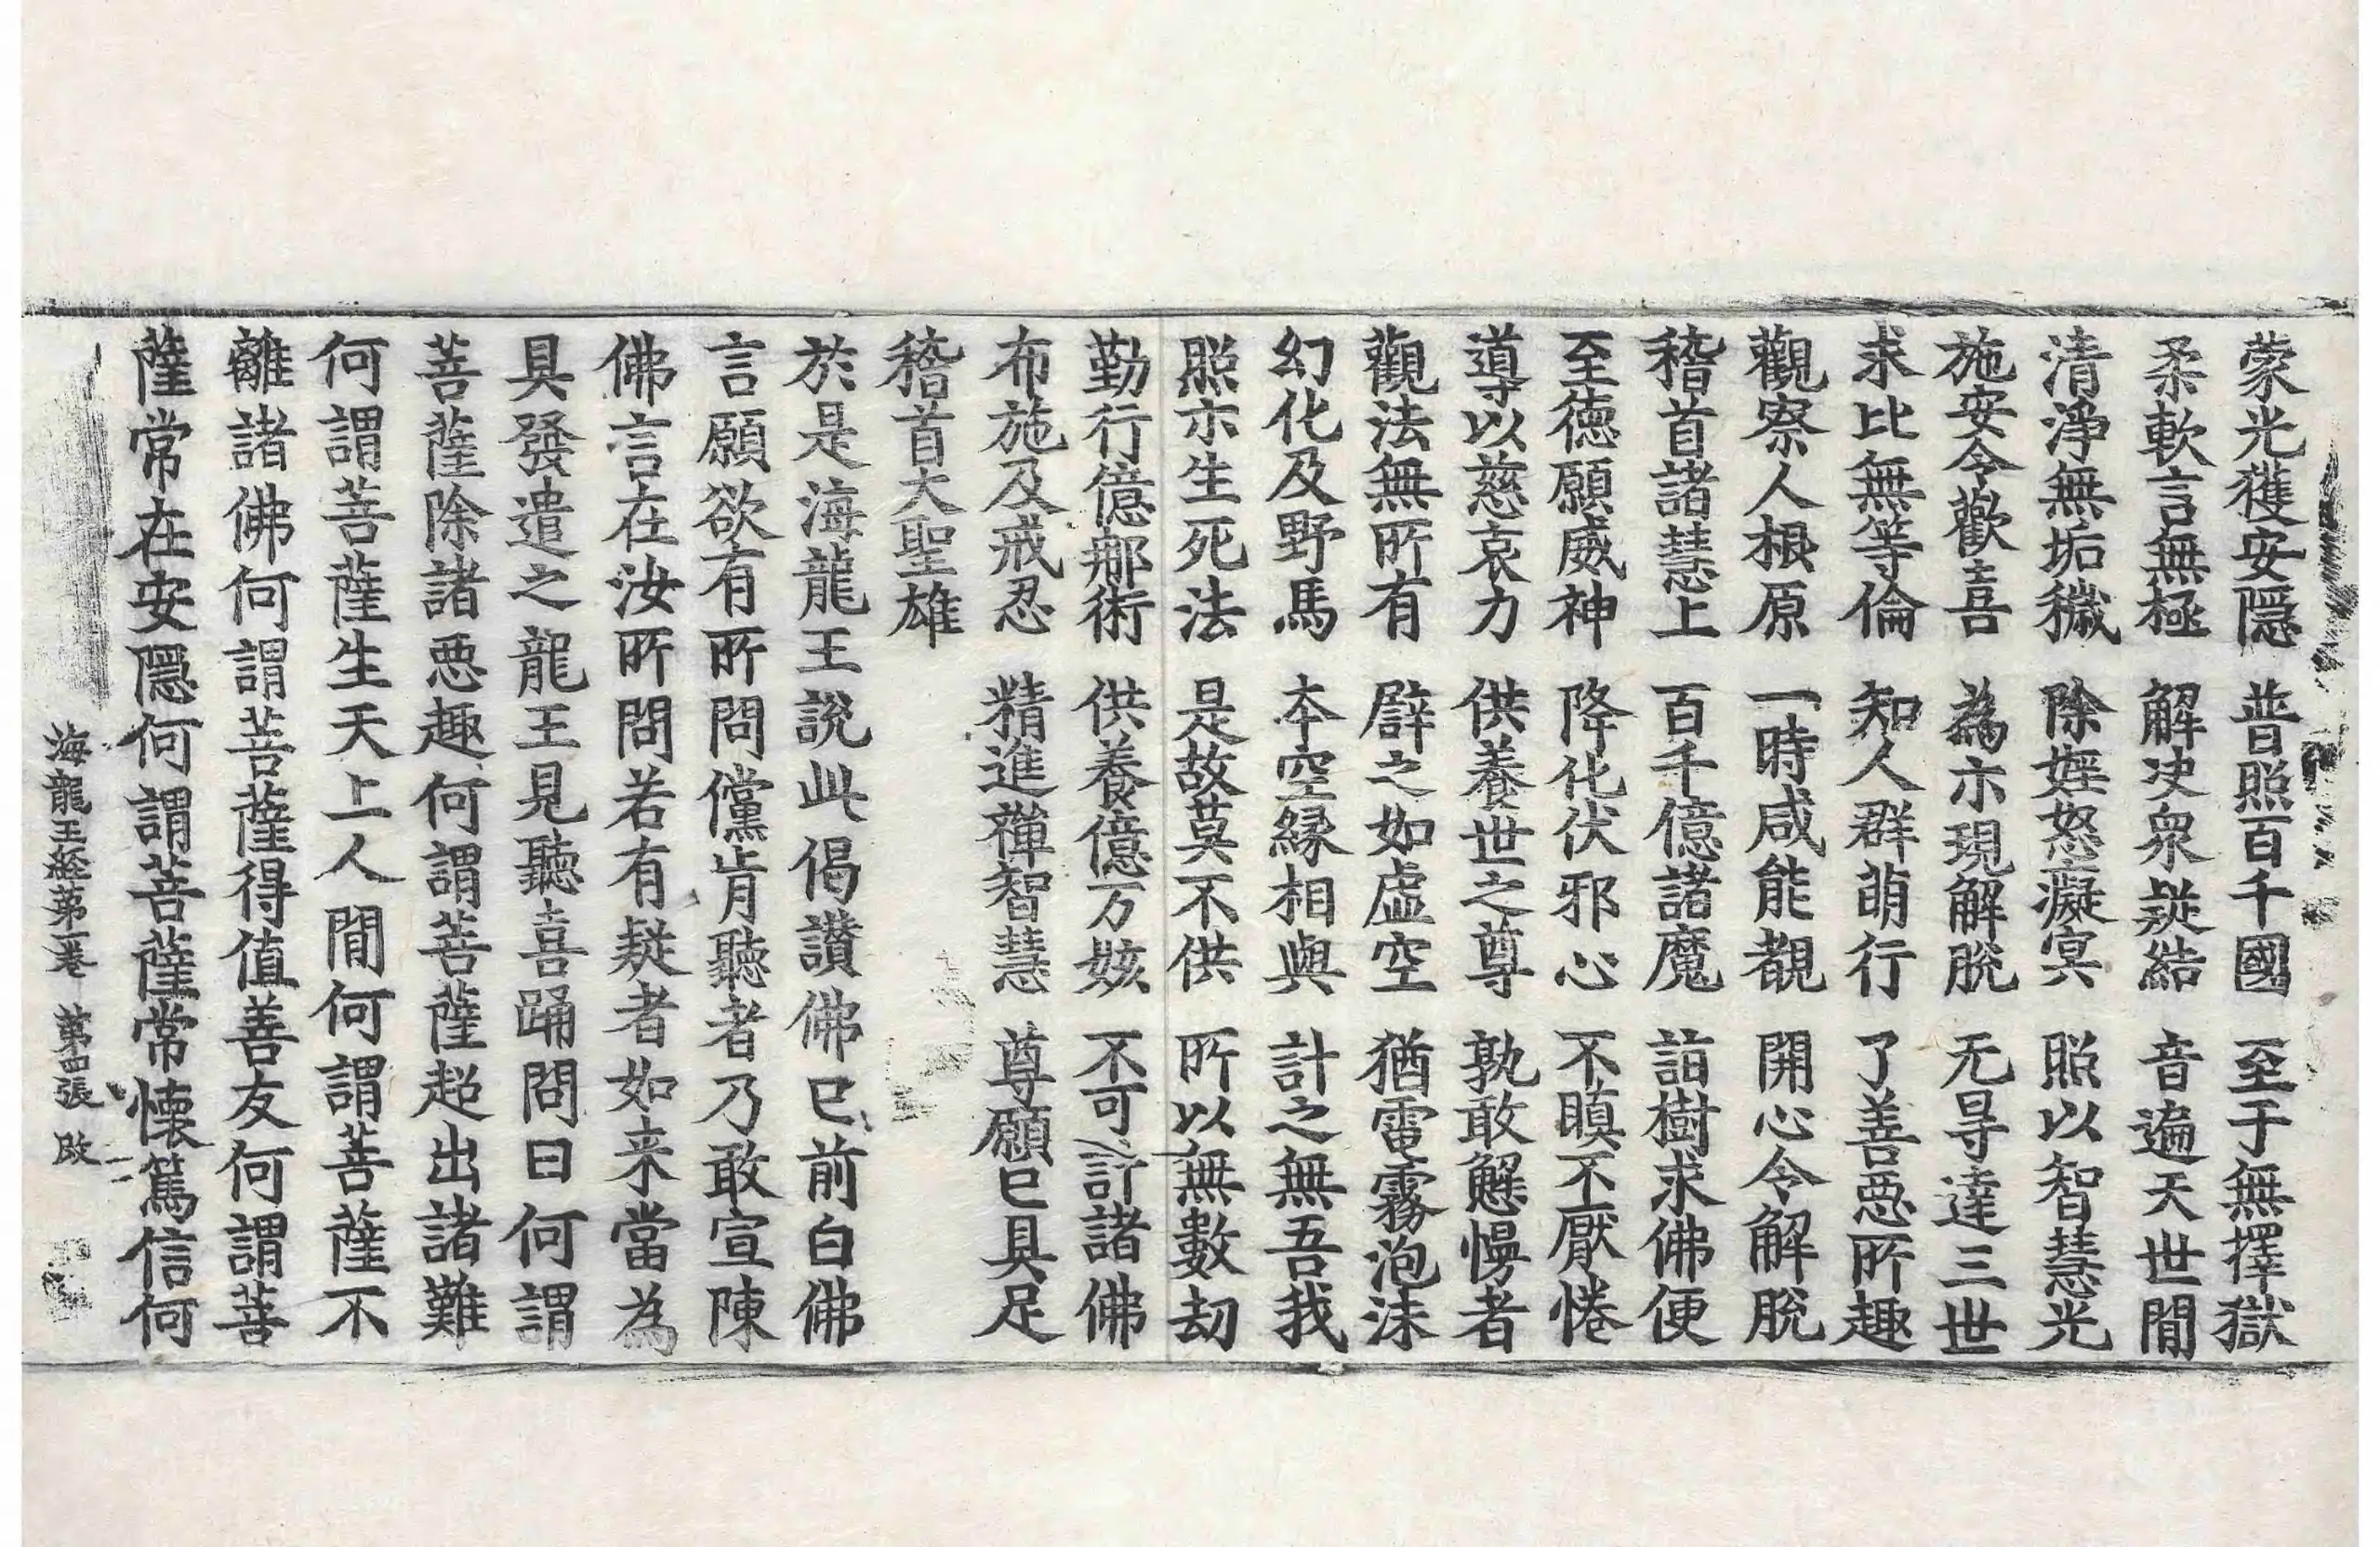 蒙光獲安隱　普照百千國　至于無擇獄
柔軟言無極　解决衆疑結　音遍天世閒
清淨無垢穢　除婬怒癡冥　照以智慧光
施安令歡喜　為示現解脫　无㝵達三世
求比無等倫　知人群萌行　了善惡所趣
觀察人根原　一時咸能覩　開心令解脫
稽首諸慧上　百千億諸魔　詣樹求佛便
至德願威神　降化伏邪心　不瞋不厭惓
導以慈哀力　供養世之尊　孰敢懈慢者
觀法無所有　譬之如虛空　猶電霧泡沫
幻化及野馬　本空緣相與　計之無吾我
照示生死法　是故莫不供　所以無數劫
勤行億那術　供養億万姟　不可計諸佛
布施及戒忍　精進禪智慧　尊願已具足
稽首大聖雄
於是海龍王說此偈讚佛已前白佛
言願欲有所問儻肯聽者乃敢宣陳
佛言在汝所問若有疑者如来當為
具發遣之龍王見聽喜踊問曰何謂
菩薩除諸惡趣何謂菩薩超出諸難
何謂菩薩生天上人閒何謂菩薩不
離諸佛何謂菩薩得值善友何謂菩
薩常在安隱何謂菩薩常懷篤信何
海龍王經第一卷　第四張　改